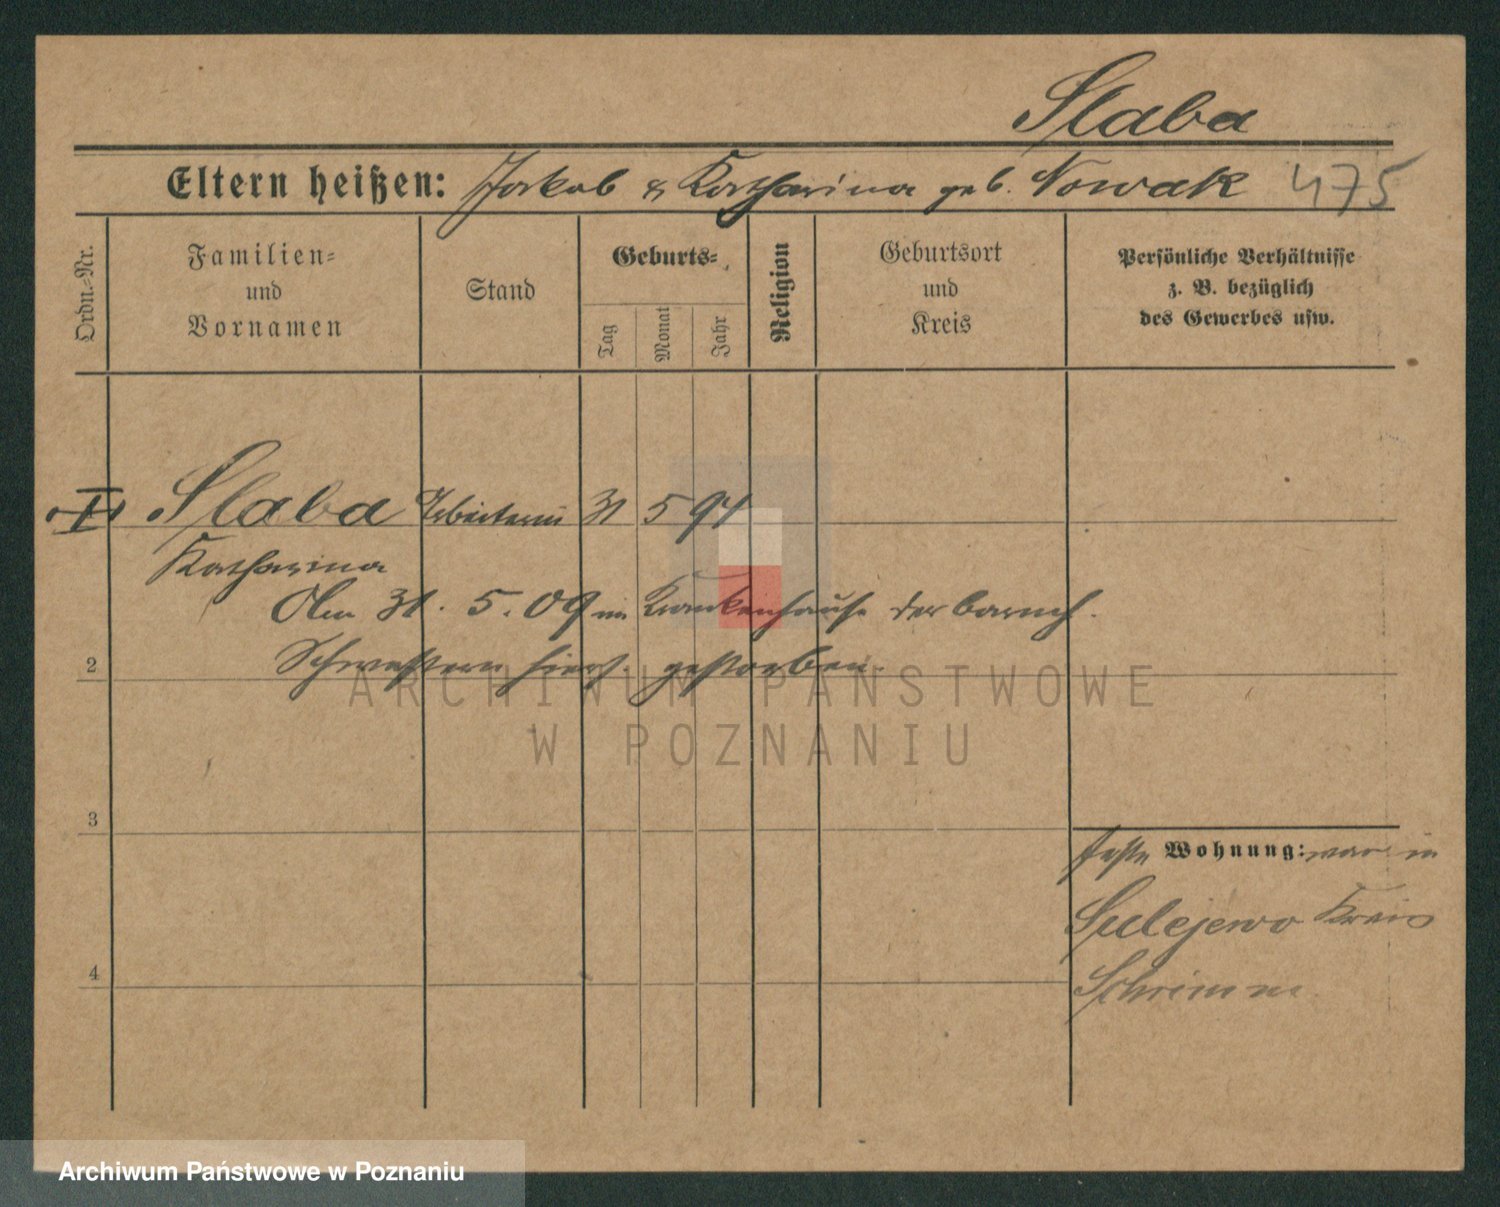 Slaba
Eltern heißen: Jakob & Katharina geb. Nowak 475
Ordn.-Nr.
Familien-
und
Vornamen
Stand
Geburts-
Tag
Monat
Jahr
Religion
Geburtsort
und
Kreis
Persönliche Verhältnisse
z. B. bezüglich
des Gewerbes usw.
Slaba Arbeiterin 31 5 94
Katharina
Am 31. 5. 09 im Krankenhause der barmh.
Schwestern hier gestorben.
2
3
4
feste Wohnung: war in
Sulejewo Kreis
Schrimm
ARCHIWUM PAŃSTWOWE
W POZNANIU
Archiwum Państwowe w Poznaniu